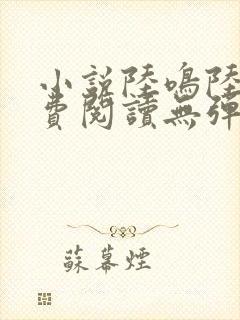 小說陸鳴陸
費閱讀無彈
蘇幕煙